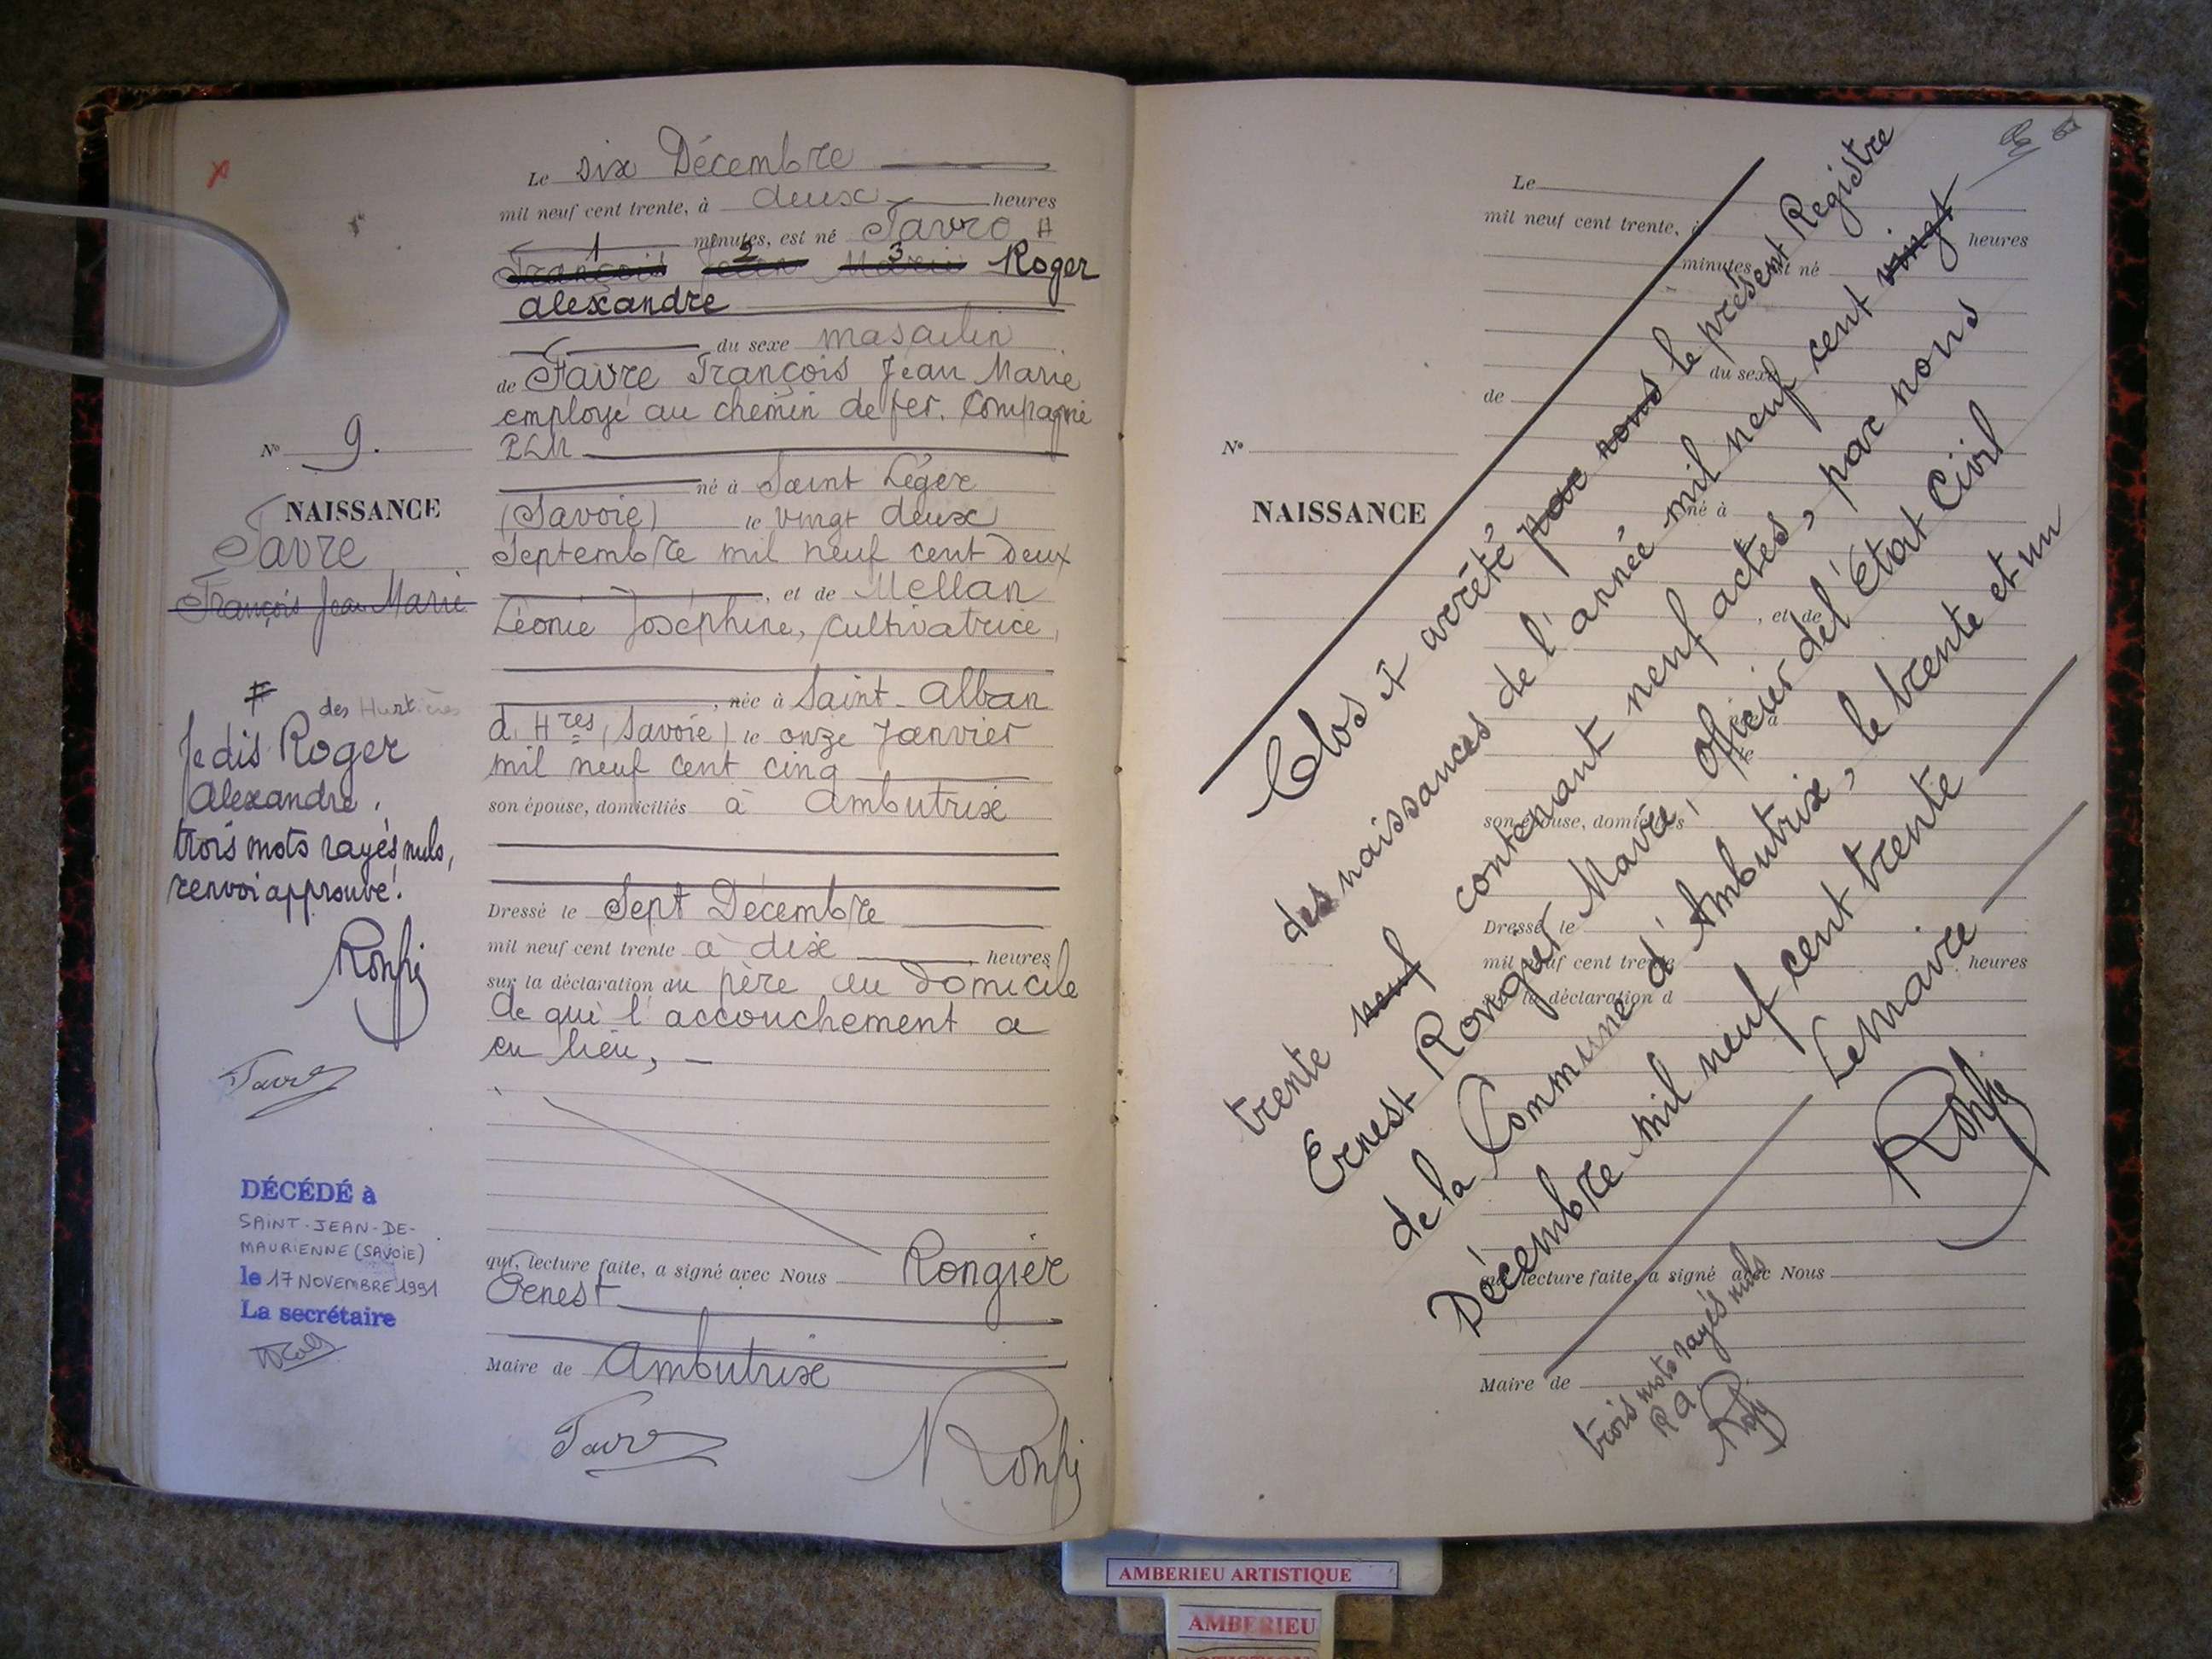 Le Six Décembre
mil neuf cent trente, à deux heures
minutes, est né Favre #
1 2 3
François Jean Marie Roger
alexandre
du sexe masculin
de Favre François Jean Marie
employé au chemin de fer. Compagnie
PLM
né à Saint Léger
(Savoie) le vingt deux
Septembre mil neuf cent deux
, et de Mellan
Léonie Joséphine, cultivatrice,
, née à Saint-Alban
d. Hres (Savoie) le onze Janvier
mil neuf cent cinq
son épouse, domiciliés à Ambutrix
Dressé le Sept Décembre
mil neuf cent trente à dix heures
sur la déclaration du père au Domicile
de qui l'accouchement a
eu lieu,
qui, lecture faite, a signé avec Nous Rongier
Ernest
Maire de Ambutrix
Favre
N° 9.
NAISSANCE
Favre
François Jean Marie
#
des Hurtières
Je dis Roger
Alexandre,
trois mots rayés nuls,
renvoi approuvé.
Favre
DÉCÉDÉ à
SAINT-JEAN-DE-
MAURIENNE (SAVOIE)
le 17 NOVEMBRE 1991
La secrétaire
Le
mil neuf cent trente, à
heures
minutes, est né
du sexe
de
N°
NAISSANCE
né à
, et de
née à
le
son épouse, domiciliés
Dressé le
mil neuf cent trente
heures
sur la déclaration d
qui, lecture faite, a signé avec Nous
Maire de
Clos et arrêté, par nous le présent Registre
des naissances de l'année mil neuf cent vingt
trente neuf contenant neuf actes, par nous
Ernest Rongier Maire, officier de l'État Civil
de la Commune d'Ambutrix, le trente et un
Décembre mil neuf cent trente
Le Maire
trois mots rayés nuls
R a.
AMBERIEU ARTISTIQUE
AMBERIEU
ARTISTIQUE